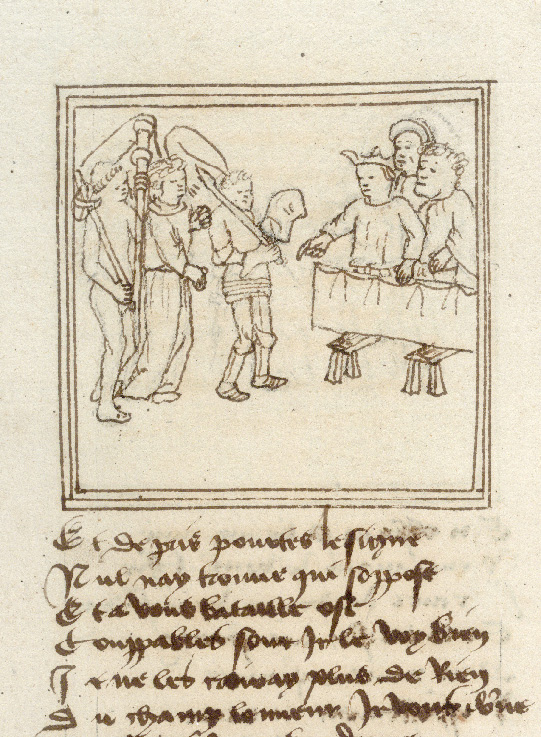 Et de pris pourtes le signe
Nul nay trouue qui soppose
Et a vous bataille ose
Couppables sont Je le voy bien
Je ne les croiray plus de Rien
Du champ